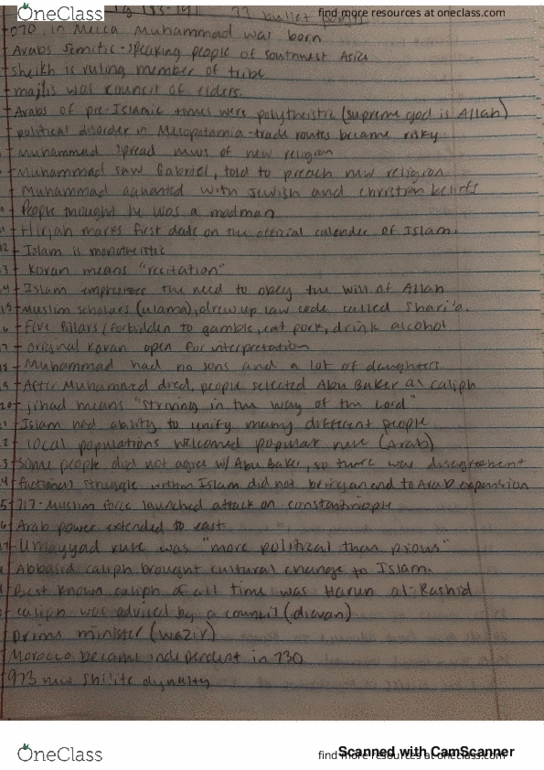 OneClass
find more resources at oneclass.com
pg 183-191 33 bullet
-570, in Mecca Muhammad was born
Arabs semitic-speaking people of Southwest Asia
sheikh is ruling member of tribe
majlis was council of elders.
Arabs of pre-Islamic times were polytheistic (supreme god is Allah)
political disorder in Mesopotamia-trade routes became risky
Muhammad spread news of new religion
Muhammad saw Gabriel, told to preach new religion
Muhammad aquanted with Jewish and christian beliefs
People thought he was a madman
Hirjah marks first date on the official calender of Islam.
12 - Islam is monotheistic
3 - Koran means "recitation"
4 - Islam emphasizes the need to obey the will of Allah
15 - Muslim scholars (ulama), drew up law code called Shari'a.
6 - Five Pillars (forbidden to gamble, eat pork, drink alcohol
7 - original Koran open for interpretation
18 - Muhammad had no sons and a lot of daughters
9 - After Muhammad died, people selected Abu Baker as caliph
20 - jihad means "striving in the way of the Lord"
1 - Islam had ability to unify many different people
2 - local populations welcomed popular rule (Arab)
3 - Some people did not agree w/ Abu Baker, so there was disagreement
4 - factional struggle within Islam did not bring an end to Arab expansion
5 - 717-Muslim force launched attack on constantinople
6 - Arab power extended to east
7 - Umayyad rule was "more political than pious"
Abbasid caliph brought cultural change to Islam.
Best known caliph of all time was Harun al-Rashid
caliph was advised by a council (diavan)
prime minister (wazir)
Morocco became independent in 730
973 new Shi'ite dynalty
OneClass
find more resources at oneclass.com
Scanned with CamScanner